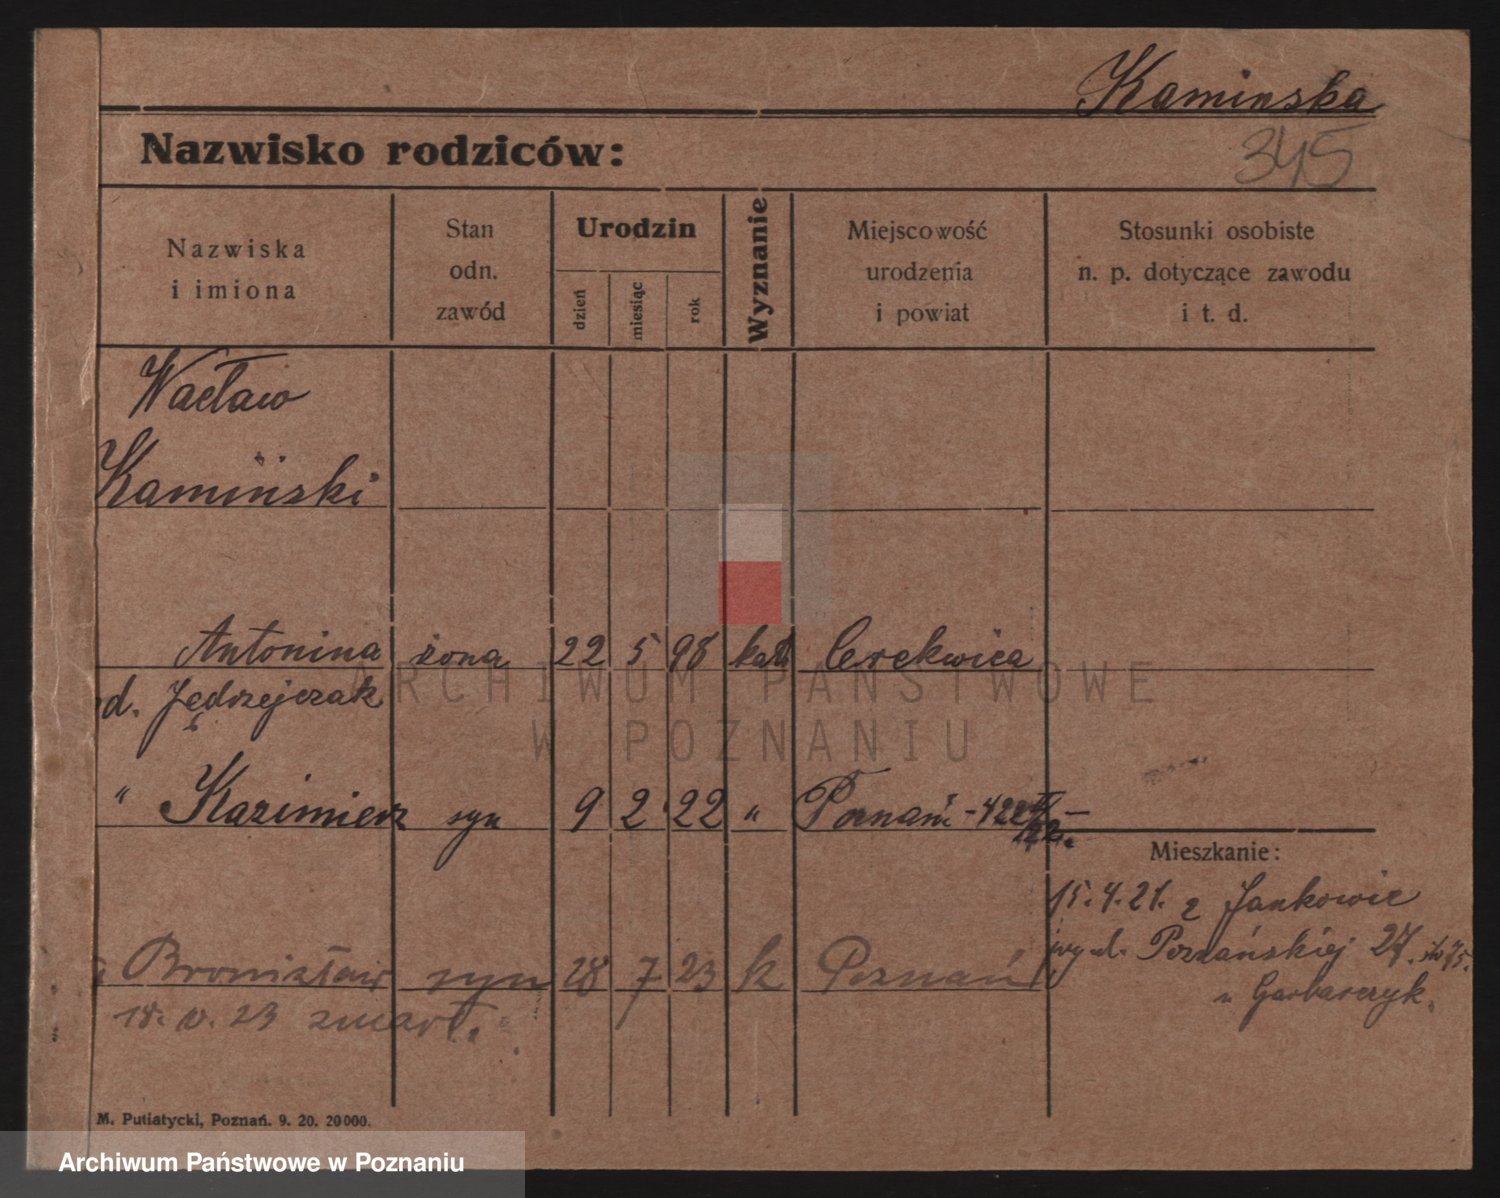 Kaminska
345
Nazwisko rodziców:
Nazwiska
i imiona
Stan
odn.
zawód
Urodzin
dzień
miesiąc
rok
Wyznanie
Miejscowość
urodzenia
i powiat
Stosunki osobiste
n. p. dotyczące zawodu
i t. d.
Wacław
Kamiński
Antonina żona 22 5 98 kath Cerekwica
d. Jędrzejczak
" Kazimierz syn 9 2 22 " Poznań
Mieszkanie:
15.4.21. z Jankowic
Bronisław syn 28 7 23 k Poznań
Poznańskiej 27.
18. V. 23 zmarł.
u Garbarczyk.
ARCHIWUM PAŃSTWOWE
W POZNANIU
M. Putiatycki, Poznań. 9. 20. 20 000.
Archiwum Państwowe w Poznaniu